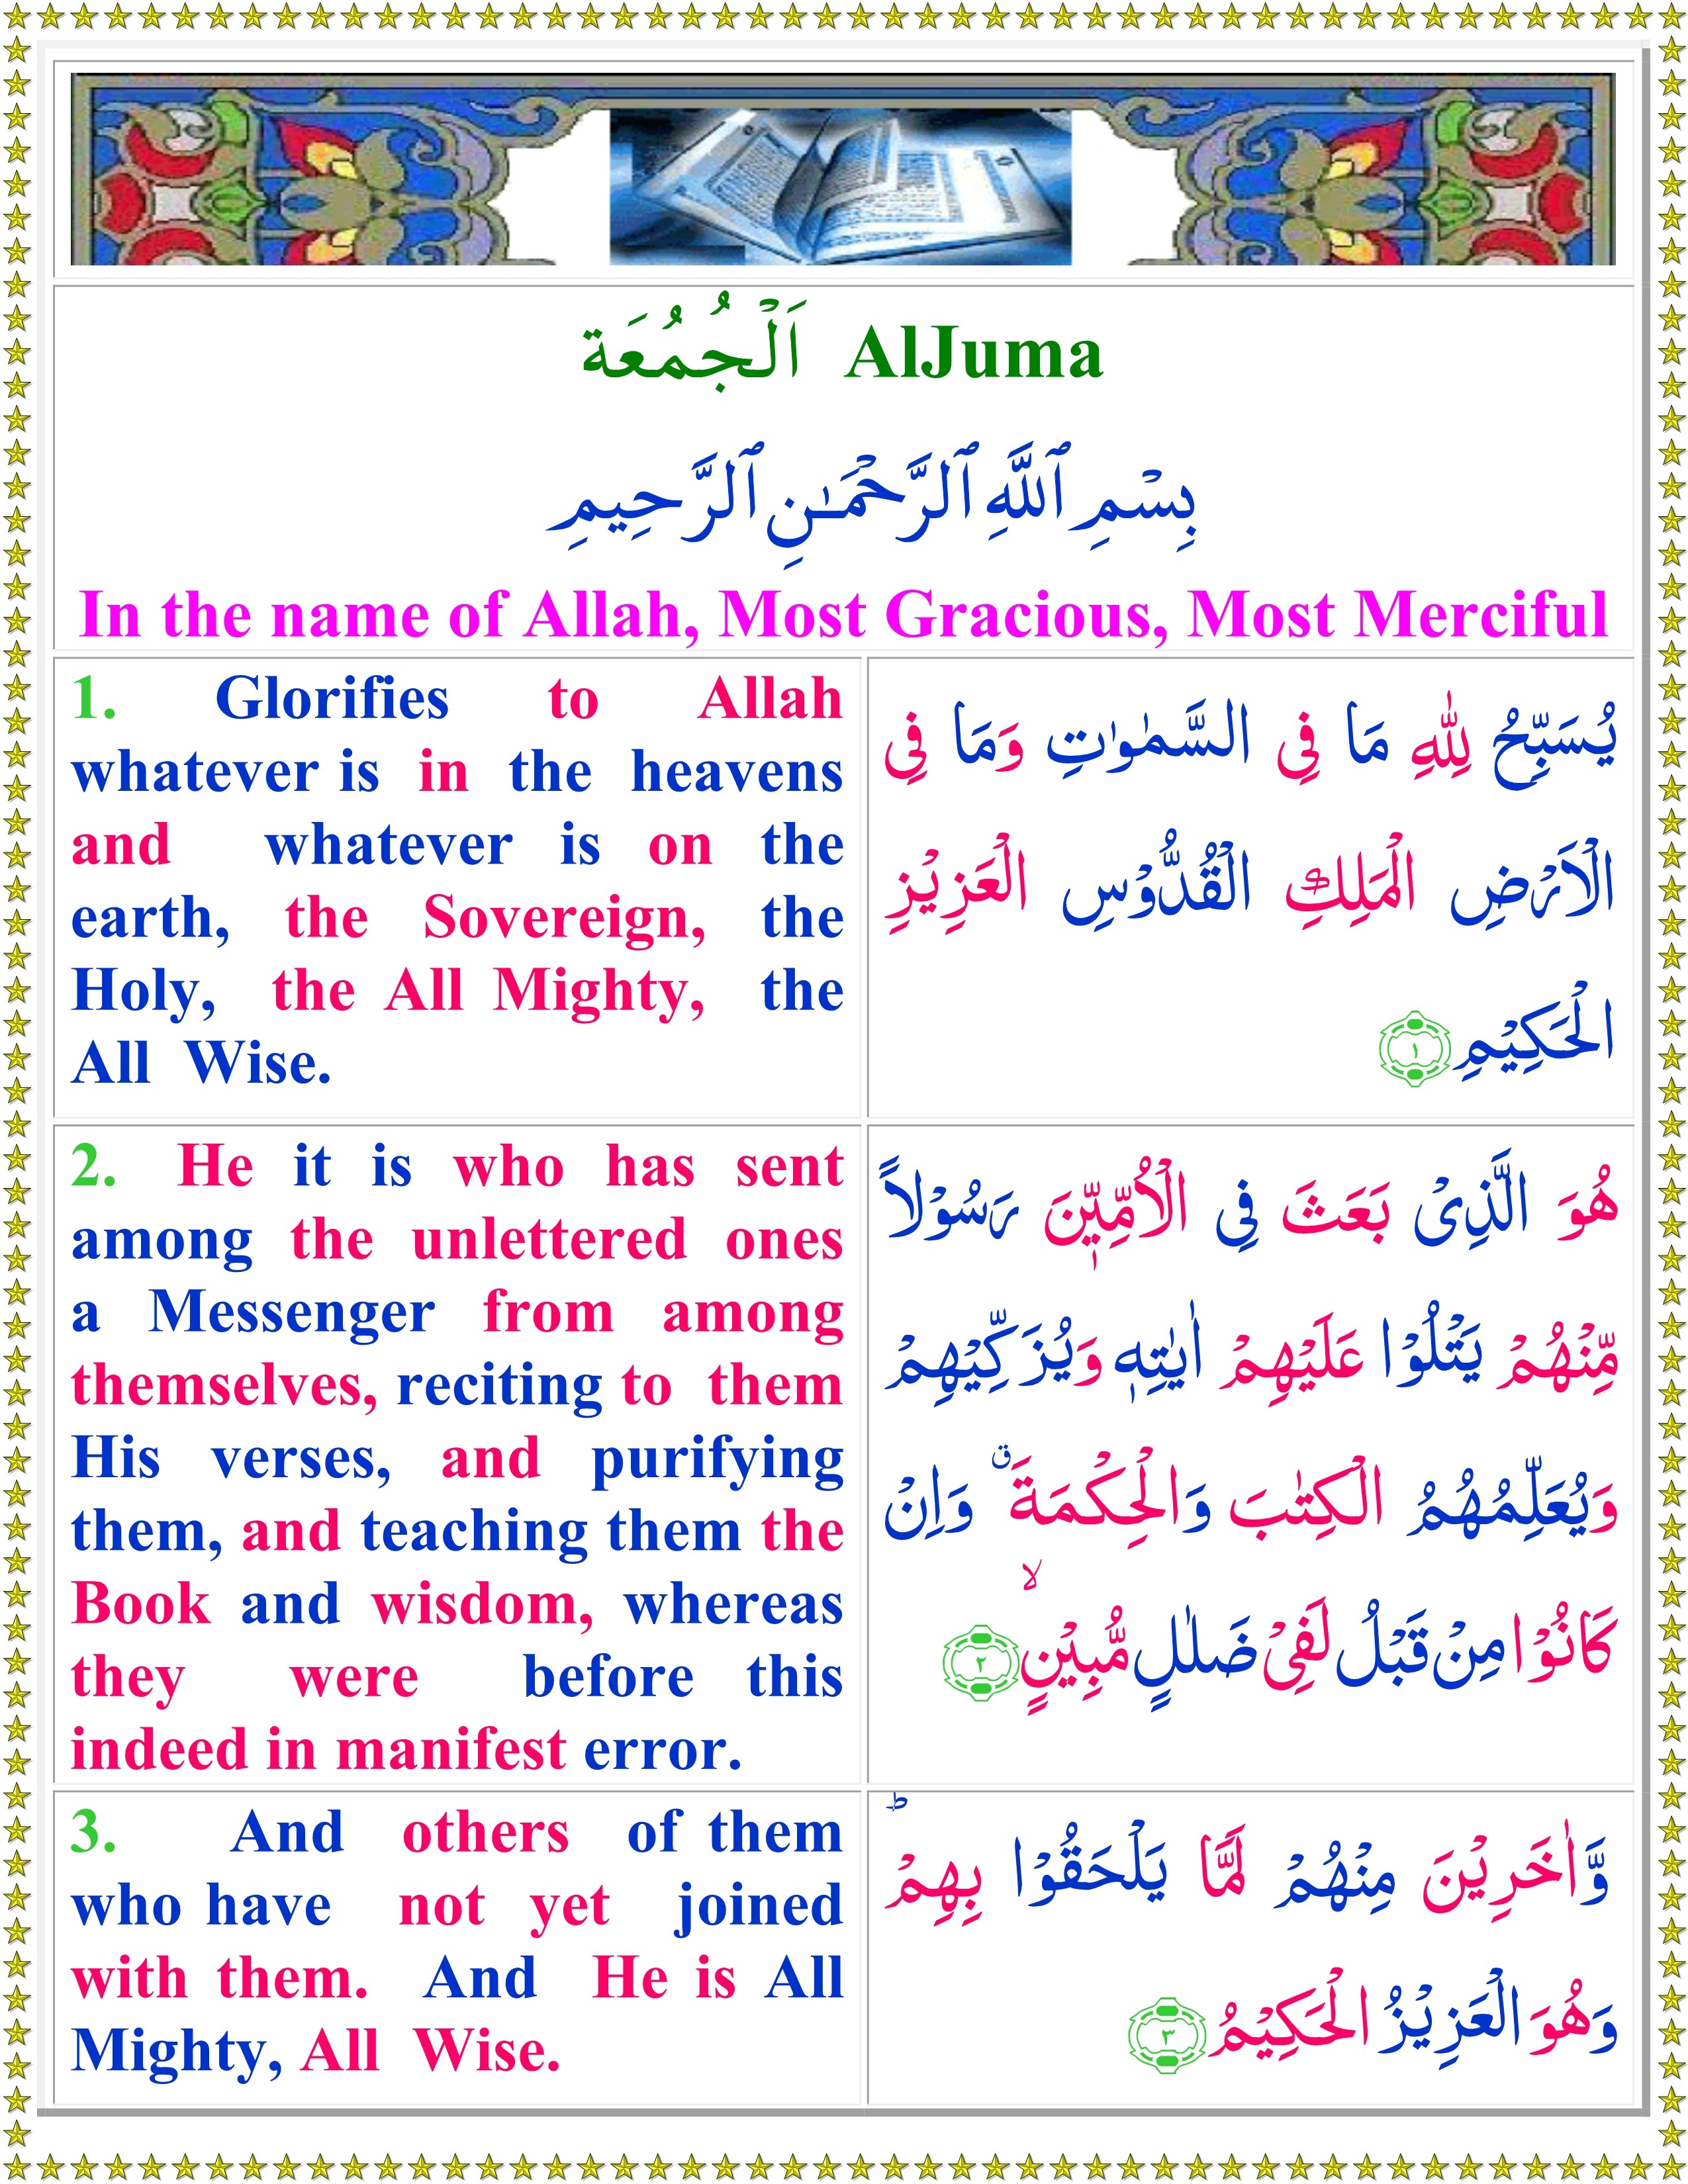 اَلْجُمُعَة AlJuma
بِسْمِ ٱللَّهِ ٱلرَّحْمَـٰنِ ٱلرَّحِيمِ
In the name of Allah, Most Gracious, Most Merciful
1. Glorifies to Allah
whatever is in the heavens
and whatever is on the
earth, the Sovereign, the
Holy, the All Mighty, the
All Wise.
يُسَبِّحُ لِلّٰهِ مَا فِى السَّمٰوٰتِ وَمَا فِى
الْاَرْضِ الْمَلِكِ الْقُدُّوْسِ الْعَزِيْزِ
الْحَكِيْمِ ﴿۱﴾
2. He it is who has sent
among the unlettered ones
a Messenger from among
themselves, reciting to them
His verses, and purifying
them, and teaching them the
Book and wisdom, whereas
they were before this
indeed in manifest error.
هُوَ الَّذِىْ بَعَثَ فِى الْاُمِّيّٖنَ رَسُوْلاً
مِّنْهُمْ يَتْلُوْا عَلَيْهِمْ اٰيٰتِهٖ وَيُزَكِّيْهِمْ
وَيُعَلِّمُهُمُ الْكِتٰبَ وَالْحِكْمَةَ ۗ وَاِنْ
كَانُوْا مِنْ قَبْلُ لَفِىْ ضَلٰلٍ مُّبِيْنٍ ۙ ﴿۲﴾
3. And others of them
who have not yet joined
with them. And He is All
Mighty, All Wise.
وَّاٰخَرِيْنَ مِنْهُمْ لَمَّا يَلْحَقُوْا بِهِمْ ؕ
وَهُوَ الْعَزِيْزُ الْحَكِيْمُ ﴿۳﴾